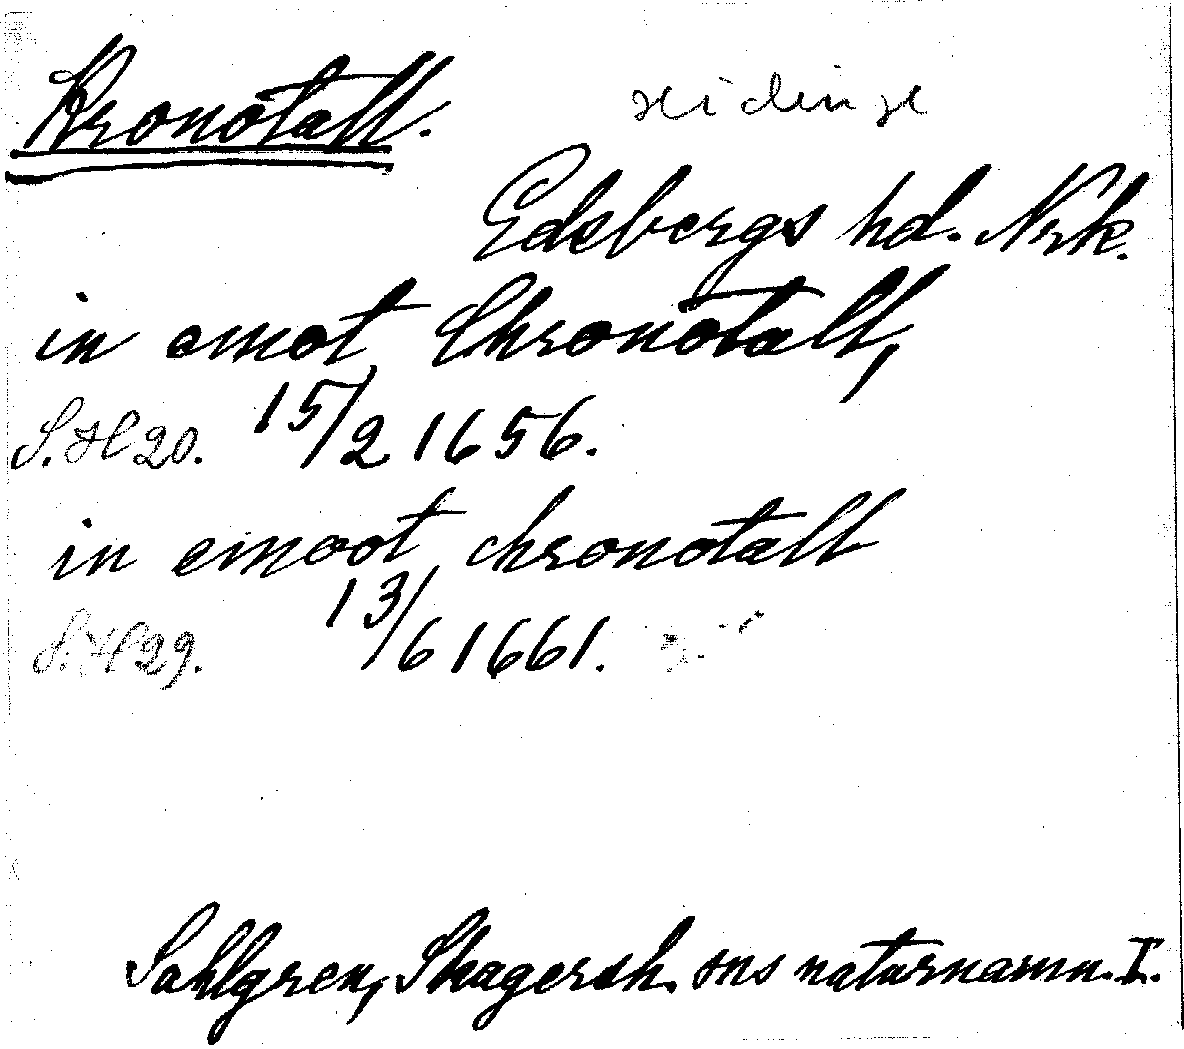 Kronotall.
Hidinge
Edsbergs hd. Nrk.
in emot Chronotall,
S.H 20. 15/2 1656.
in emoot chronotall
S.H 29. 13/6 1661.
Sahlgren, Skagersh. sns naturnamn. I.